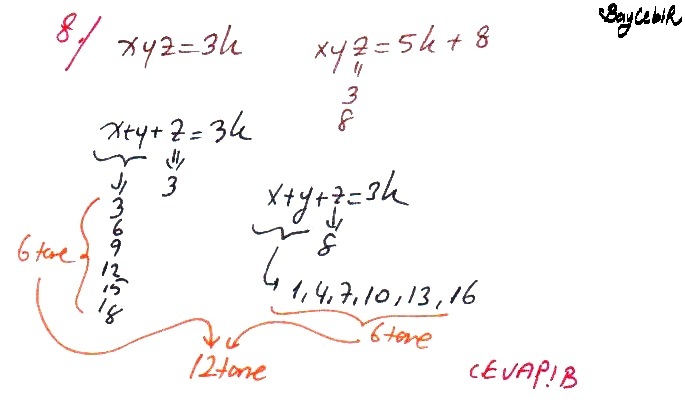 BayCebiR
8./ xyz=3k xyz=5k+8
3
8
x+y+z=3k
3
3
6
9
12
15
18
6 tane
x+y+z=3k
8
1,4,7,10,13,16
6 tane
12 tane
CEVAP!B